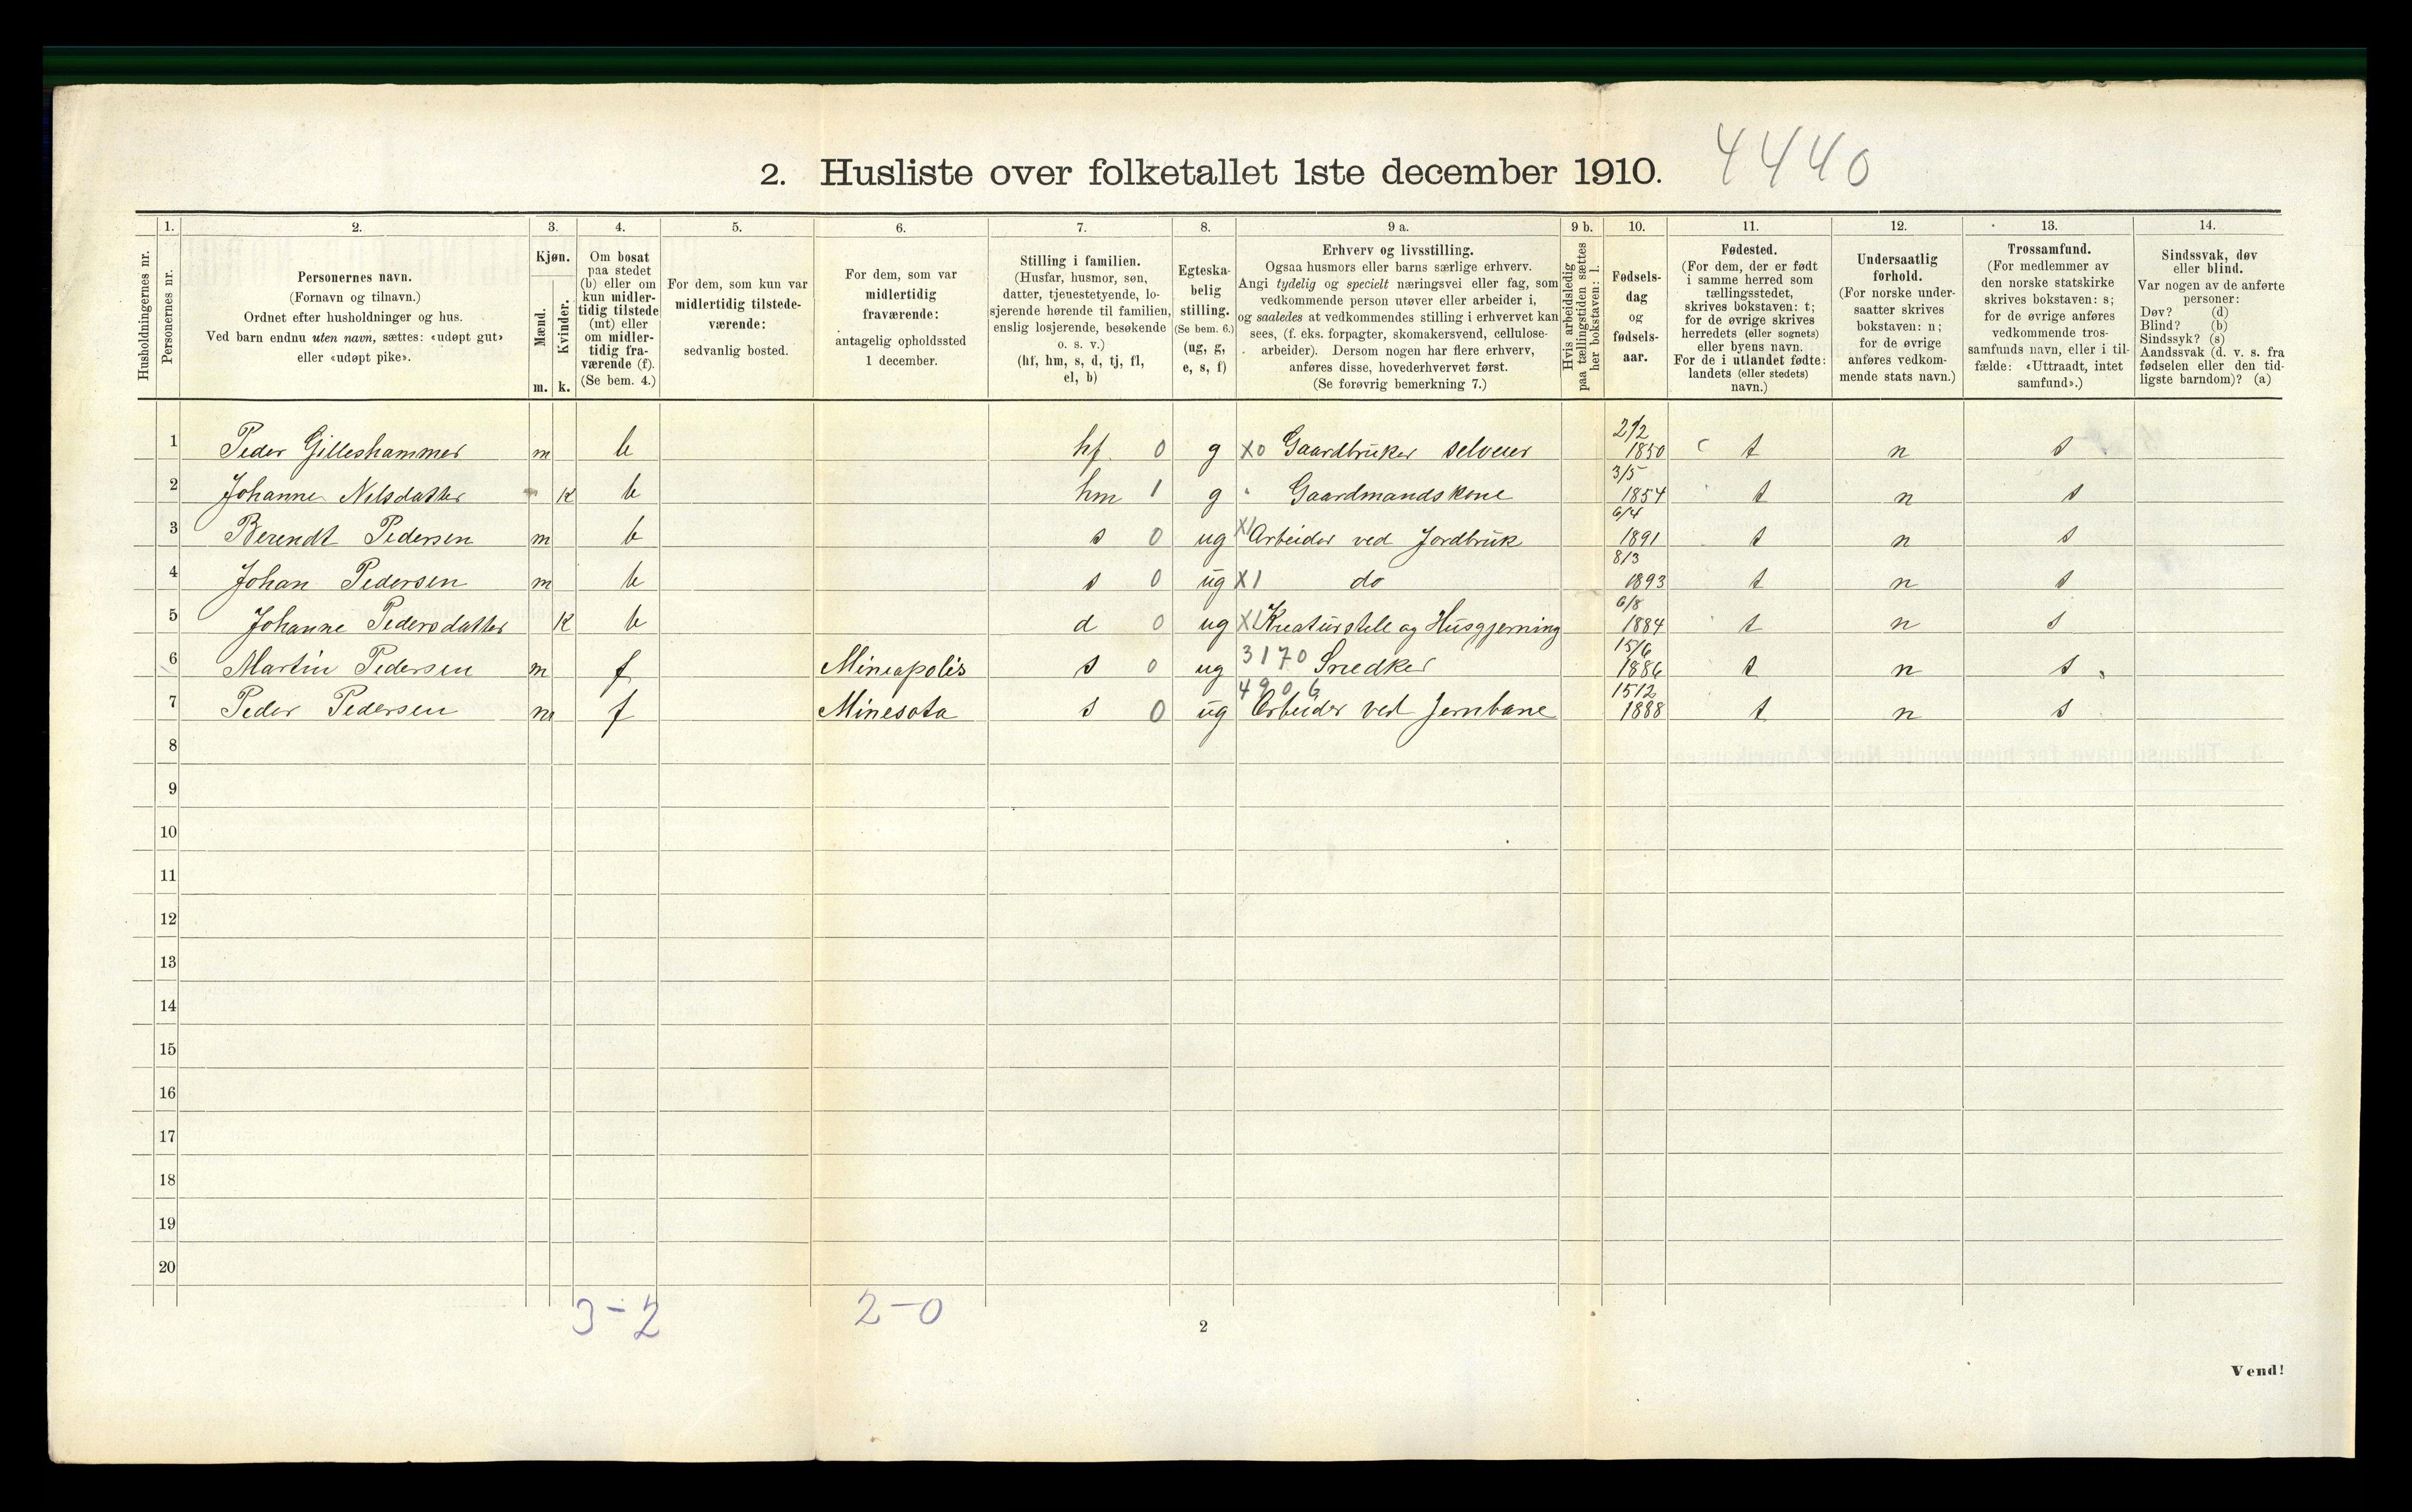 2. Husliste over folketallet 1ste december 1910. 4440
Husholdningernes nr.
1.
Personernes nr.
2.
Personernes navn.
(Fornavn og tilnavn.)
Ordnet efter husholdninger og hus.
Ved barn endnu uten navn, sættes: «udøpt gut»
eller «udøpt pike».
3.
Kjøn.
Mænd.
m.
Kvinder.
k.
4.
Om bosat
paa stedet
(b) eller om
kun midler-
tidig tilstede
(mt) eller
om midler-
tidig fra-
værende (f).
(Se bem. 4.)
5.
For dem, som kun var
midlertidig tilstede-
værende:
sedvanlig bosted.
6.
For dem, som var
midlertidig
fraværende:
antagelig opholdssted
1 december.
7.
Stilling i familien.
(Husfar, husmor, søn,
datter, tjenestetyende, lo-
sjerende hørende til familien,
enslig losjerende, besøkende
o. s. v.)
(hf, hm, s, d, tj, fl,
el, b)
8.
Egteska-
belig
stilling.
(Se bem. 6.)
(ug, g,
e, s, f)
9 a.
Erhverv og livsstilling.
Ogsaa husmors eller barns særlige erhverv.
Angi tydelig og specielt næringsvei eller fag, som
vedkommende person utøver eller arbeider i,
og saaledes at vedkommendes stilling i erhvervet kan
sees, (f. eks. forpagter, skomakersvend, cellulose-
arbeider). Dersom nogen har flere erhverv,
anføres disse, hovederhvervet først.
(Se forøvrig bemerkning 7.)
9 b.
Hvis arbeidsledig
paa tællingstiden sættes
her bokstaven: l.
10.
Fødsels-
dag
og
fødsels-
aar.
11.
Fødested.
(For dem, der er født
i samme herred som
tællingsstedet,
skrives bokstaven: t;
for de øvrige skrives
herredets (eller sognets)
eller byens navn.
For de i utlandet fødte:
landets (eller stedets)
navn.)
12.
Undersaatlig
forhold.
(For norske under-
saatter skrives
bokstaven: n;
for de øvrige
anføres vedkom-
mende stats navn.)
13.
Trossamfund.
(For medlemmer av
den norske statskirke
skrives bokstaven: s;
for de øvrige anføres
vedkommende tros-
samfunds navn, eller i til-
fælde: «Uttraadt, intet
samfund».)
14.
Sindssvak, døv
eller blind.
Var nogen av de anførte
personer:
Døv? (d)
Blind? (b)
Sindssyk? (s)
Aandssvak (d. v. s. fra
fødselen eller den tid-
ligste barndom)? (a)
1 Peder Gilleshammer m b hf 0 g X0 Gaardbruker selveier 2/2 1850 t n s
2 Johanne Nilsdatter K b hm 1 g Gaardmandskone 3/5 1854 t n s
3 Berendt Pedersen m b s 0 ug X1 Arbeider ved Jordbruk 6/4 1891 t n s
4 Johan Pedersen m b s 0 ug X1 do 8/3 1893 t n s
5 Johanne Pedersdatter K b d 0 ug X1 Kreaturstell og Husgjerning 6/8 1884 t n s
6 Martin Pedersen m f Mineapolis s 0 ug 3170 Snedker 15/6 1886 t n s
7 Peder Pedersen m f Minesota s 0 ug 4906 Arbeider ved Jernbane 15/2 1888 t n s
8
9
10
11
12
13
14
15
16
17
18
19
20
3-2 2-0
2
Vend!